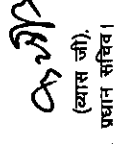 (व्यास जी),
प्रधान सचिव।